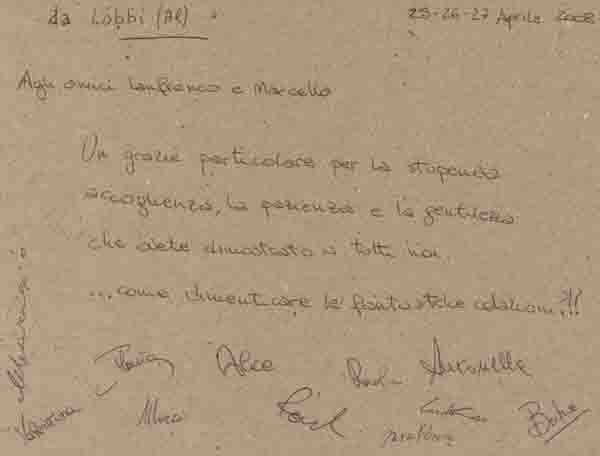 da Lobbi (AL)
25-26-27 Aprile 2008
Agli amici Lanfranco e Marcello
Un grazie particolare per la stupenda
accoglienza, la pazienza e la gentilezza
che avete dimostrato a tutti noi.
...come dimenticare le fantastiche colazioni?!!
Alice
Paola
Antonella
Valentina